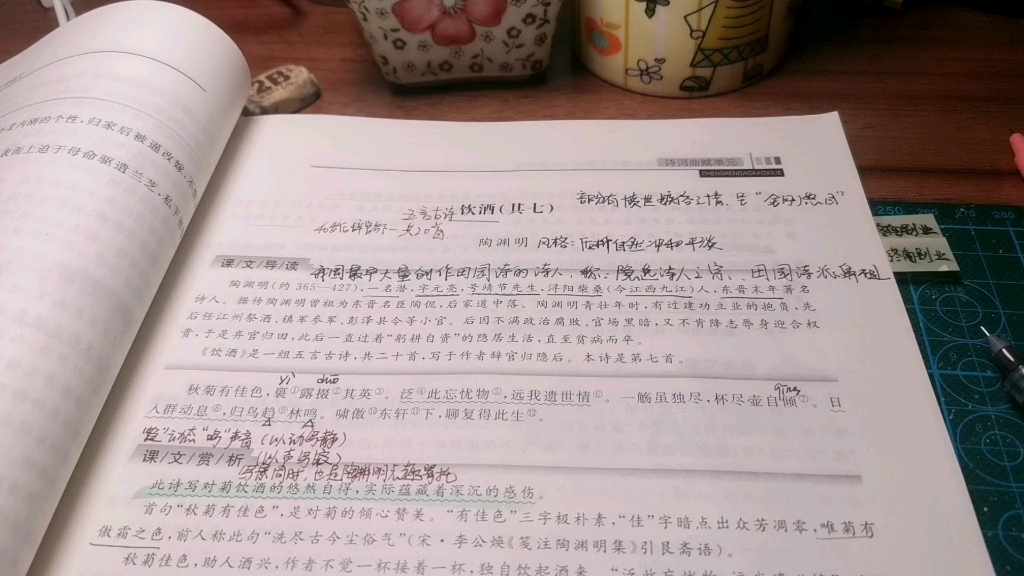 内刚的个性，归家后被逼改嫁，
表面上迫于母命驱遣兰芝，私下
2B
诗词曲赋单元
CHENGRENGAOKAOXILIE
五言古诗 饮酒(其七)
一共20首
陶渊明 风格：自然 冲和平淡
课/文/导/读
我国最早大量创作田园诗的诗人，称：隐逸诗人之宗、田园诗派鼻祖
陶渊明(约 365—427)，一名潜，字元亮，号靖节先生，浔阳柴桑(今江西九江)人，东晋末年著名
诗人。据传陶渊明曾祖为东晋名臣陶侃，后家道中落。陶渊明青壮年时，有过建功立业的抱负，先
后任江州祭酒、镇军参军、彭泽县令等小官。后因不满政治腐败、官场黑暗，又不肯降志辱身迎合权
贵，于是弃官归田，此后一直过着“躬耕自资”的隐居生活，直至贫病而卒。
《饮酒》是一组五言古诗，共二十首，写于作者辞官归隐后。本诗是第七首。
yì duō qīng
秋菊有佳色，裛①露掇②其英③。泛④此忘忧物⑤，远我遗世情⑥。一觞虽独尽，杯尽壶自倾⑦。日
入群动息⑧，归鸟趋⑨林鸣。啸傲⑩东轩⑪下，聊复得此生⑫。
动态“鸣”声音 (以动写静)
课/文/赏/析
此诗写对菊饮酒的悠然自得，实际蕴藏着深沉的感伤。
首句“秋菊有佳色”，是对菊的倾心赞美。“有佳色”三字极朴素，“佳”字暗点出众芳凋零，唯菊有
傲霜之色，前人称此句“洗尽古今尘俗气”(宋·李公焕《笺注陶渊明集》引艮斋语)。
秋菊佳色，助人酒兴，作者不觉一杯接着一杯，独自饮起酒来。
250